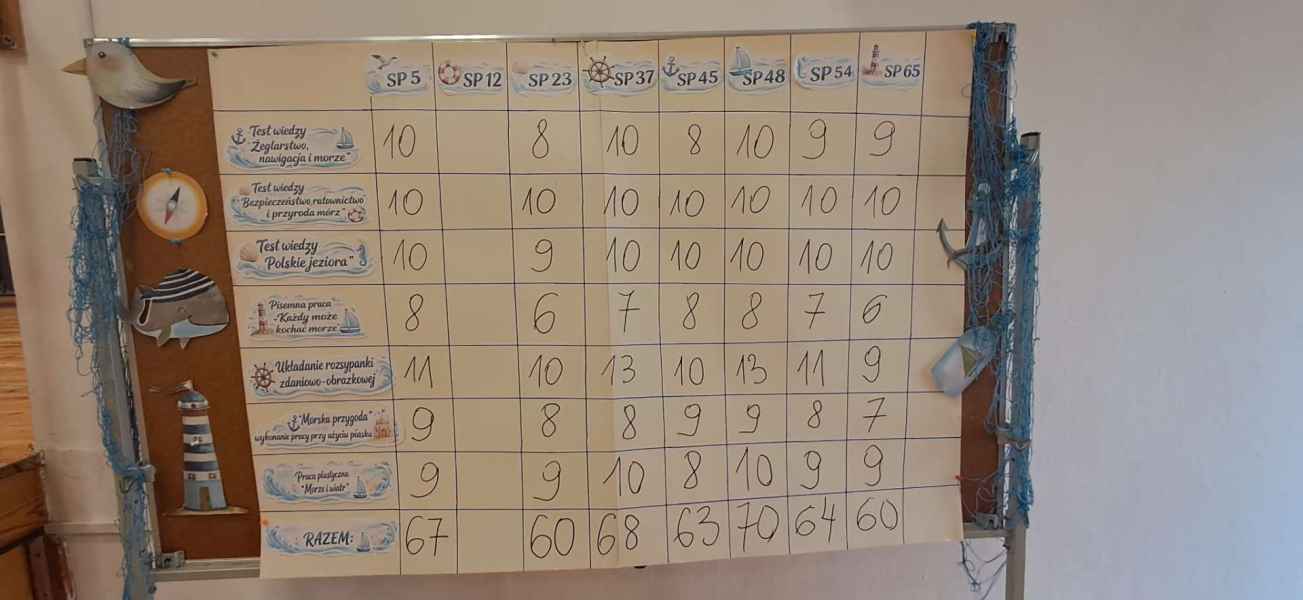 SP 5 SP 12 SP 23 SP 37 SP 45 SP 48 SP 54 SP 65
Test wiedzy
"Żeglarstwo,
nawigacja i morze"
10 8 10 8 10 9 9
Test wiedzy
"Bezpieczeństwo, ratownictwo
i przyroda mórz"
10 10 10 10 10 10 10
Test wiedzy
"Polskie jeziora"
10 9 10 10 10 10 10
Pisemna praca
-"Każdy może
kochać morze"
8 6 7 8 8 7 6
Układanie rozsypanki
zdaniowo-obrazkowej
11 10 13 10 13 11 9
"Morska przygoda"
wykonanie pracy przy użyciu piasku
9 8 8 9 9 8 7
Praca plastyczna
"Morze i wiatr"
9 9 10 8 10 9 9
RAZEM:
67 60 68 63 70 64 60